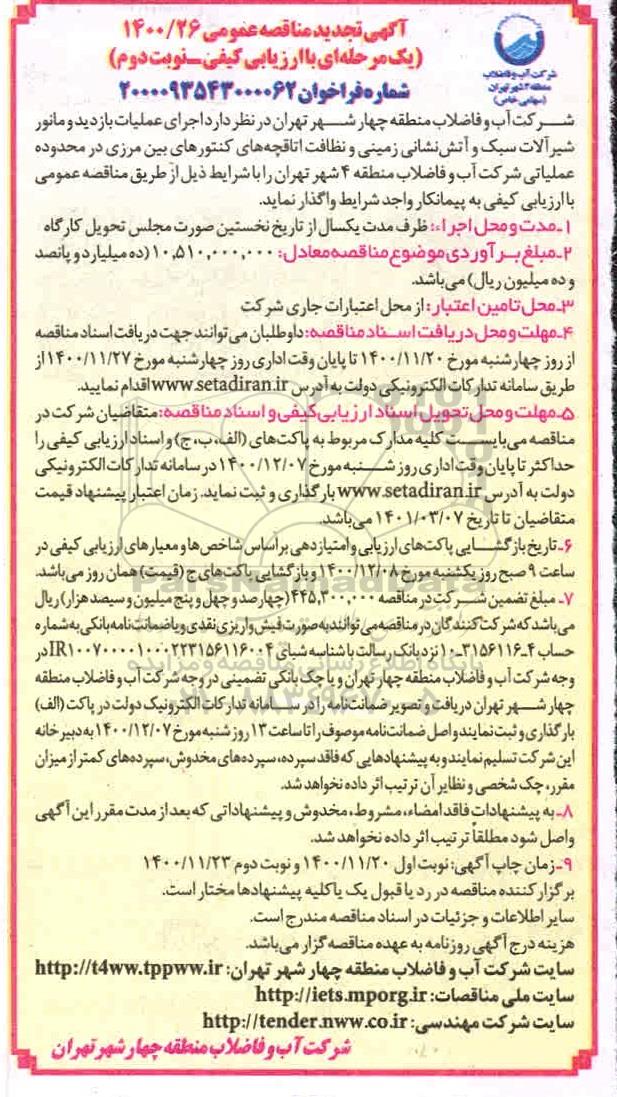 آگهی تجدید مناقصه عمومی ۱۴۰۰/۲۶
(یک مرحله‌ای با ارزیابی کیفی - نوبت دوم)
شماره فراخوان ۲۰۰۰۰۹۳۵۴۳۰۰۰۰۶۲
شرکت آب و فاضلاب
منطقه ۴ شهر تهران
(سهامی خاص)
شرکت آب و فاضلاب منطقه چهار شهر تهران در نظر دارد اجرای عملیات بازدید و مانور
شیرآلات سبک و آتش‌نشانی زمینی و نظافت اتاقچه‌های کنتورهای بین مرزی در محدوده
عملیاتی شرکت آب و فاضلاب منطقه ۴ شهر تهران را با شرایط ذیل از طریق مناقصه عمومی
با ارزیابی کیفی به پیمانکار واجد شرایط واگذار نماید.
۱- مدت و محل اجراء: ظرف مدت یکسال از تاریخ نخستین صورت مجلس تحویل کارگاه
۲- مبلغ برآوردی موضوع مناقصه معادل: ۱۰,۵۱۰,۰۰۰,۰۰۰ (ده میلیارد و پانصد
و ده میلیون ریال) می‌باشد.
۳- محل تامین اعتبار: از محل اعتبارات جاری شرکت
۴- مهلت و محل دریافت اسناد مناقصه: داوطلبان می‌توانند جهت دریافت اسناد مناقصه
از روز چهارشنبه مورخ ۱۴۰۰/۱۱/۲۰ تا پایان وقت اداری روز چهارشنبه مورخ ۱۴۰۰/۱۱/۲۷ از
طریق سامانه تدارکات الکترونیکی دولت به آدرس www.setadiran.ir اقدام نمایید.
۵- مهلت و محل تحویل اسناد ارزیابی کیفی و اسناد مناقصه: متقاضیان شرکت در
مناقصه می‌بایست کلیه مدارک مربوط به پاکت‌های (الف، ب، ج) و اسناد ارزیابی کیفی را
حداکثر تا پایان وقت اداری روز شنبه مورخ ۱۴۰۰/۱۲/۰۷ در سامانه تدارکات الکترونیکی
دولت به آدرس www.setadiran.ir بارگذاری و ثبت نماید. زمان اعتبار پیشنهاد قیمت
متقاضیان تا تاریخ ۱۴۰۱/۰۳/۰۷ می‌باشد.
۶- تاریخ بازگشایی پاکت‌های ارزیابی و امتیازدهی بر اساس شاخص‌ها و معیارهای ارزیابی کیفی در
ساعت ۹ صبح روز یکشنبه مورخ ۱۴۰۰/۱۲/۰۸ و بازگشایی پاکت‌های ج (قیمت) همان روز می‌باشد.
۷- مبلغ تضمین شرکت در مناقصه ۴۴۵,۳۰۰,۰۰۰ (چهارصد و چهل و پنج میلیون و سیصد هزار) ریال
می‌باشد که شرکت‌کنندگان در مناقصه می‌توانند به صورت فیش واریزی نقدی و یا ضمانت‌نامه بانکی به شماره
حساب ۴-۳۱۵۶۱۱۶-۱۰ نزد بانک رسالت با شناسه شبای IR۱۰۰۷۰۰۰۰۱۰۰۰۲۲۳۱۵۶۱۱۶۰۰۴ در
وجه شرکت آب و فاضلاب منطقه چهار تهران و یا چک بانکی تضمینی در وجه شرکت آب و فاضلاب منطقه
چهار شهر تهران دریافت و تصویر ضمانت‌نامه را در سامانه تدارکات الکترونیک دولت در پاکت (الف)
بارگذاری و ثبت نمایند و اصل ضمانت‌نامه موصوف را تا ساعت ۱۳ روز شنبه مورخ ۱۴۰۰/۱۲/۰۷ به دبیرخانه
این شرکت تسلیم نمایند و به پیشنهادهایی که فاقد سپرده، سپرده‌های مخدوش، سپرده‌های کمتر از میزان
مقرر، چک شخصی و نظایر آن ترتیب اثر داده نخواهد شد.
۸- به پیشنهادات فاقد امضاء، مشروط، مخدوش و پیشنهاداتی که بعد از مدت مقرر این آگهی
واصل شود مطلقاً ترتیب اثر داده نخواهد شد.
۹- زمان چاپ آگهی: نوبت اول ۱۴۰۰/۱۱/۲۰ و نوبت دوم ۱۴۰۰/۱۱/۲۳
برگزارکننده مناقصه در رد یا قبول یک یا کلیه پیشنهادها مختار است.
سایر اطلاعات و جزئیات در اسناد مناقصه مندرج است.
هزینه درج آگهی روزنامه به عهده مناقصه گزار می‌باشد.
سایت شرکت آب و فاضلاب منطقه چهار شهر تهران: http://t4ww.tppww.ir
سایت ملی مناقصات: http://iets.mporg.ir
سایت شرکت مهندسی: http://tender.nww.co.ir
شرکت آب و فاضلاب منطقه چهار شهر تهران